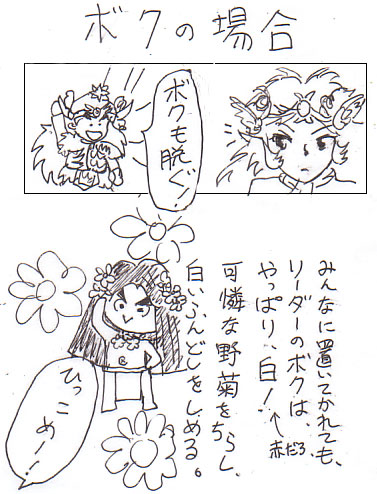 ボクの場合
ボクも
脱ぐ!
みんなに置いてかれても、
リーダーのボクは、
やっぱり、白!
←赤だろ、
可憐な野菊をちらし、
白いふんどしをしめる。
ひっこ
めー!